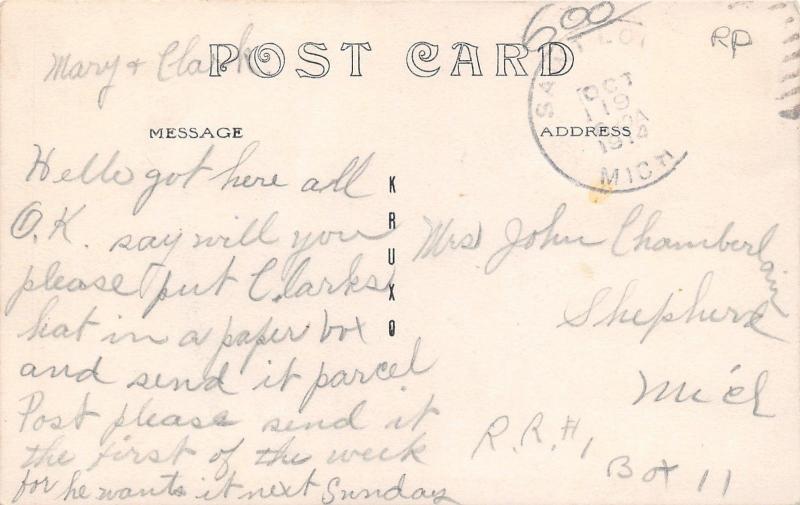 5.00
RP
Mary + Clark
POST CARD
OCT
19
MICH
MESSAGE
ADDRESS
Hello got here all
O.K. say will you
please put Clarks
hat in a paper box
and send it parcel
Post please send it
the first of the week
for he wants it next Sunday
KRUXO
Mrs John Chamberlain
Shepherd
Mich
R.R.#1
Box 11